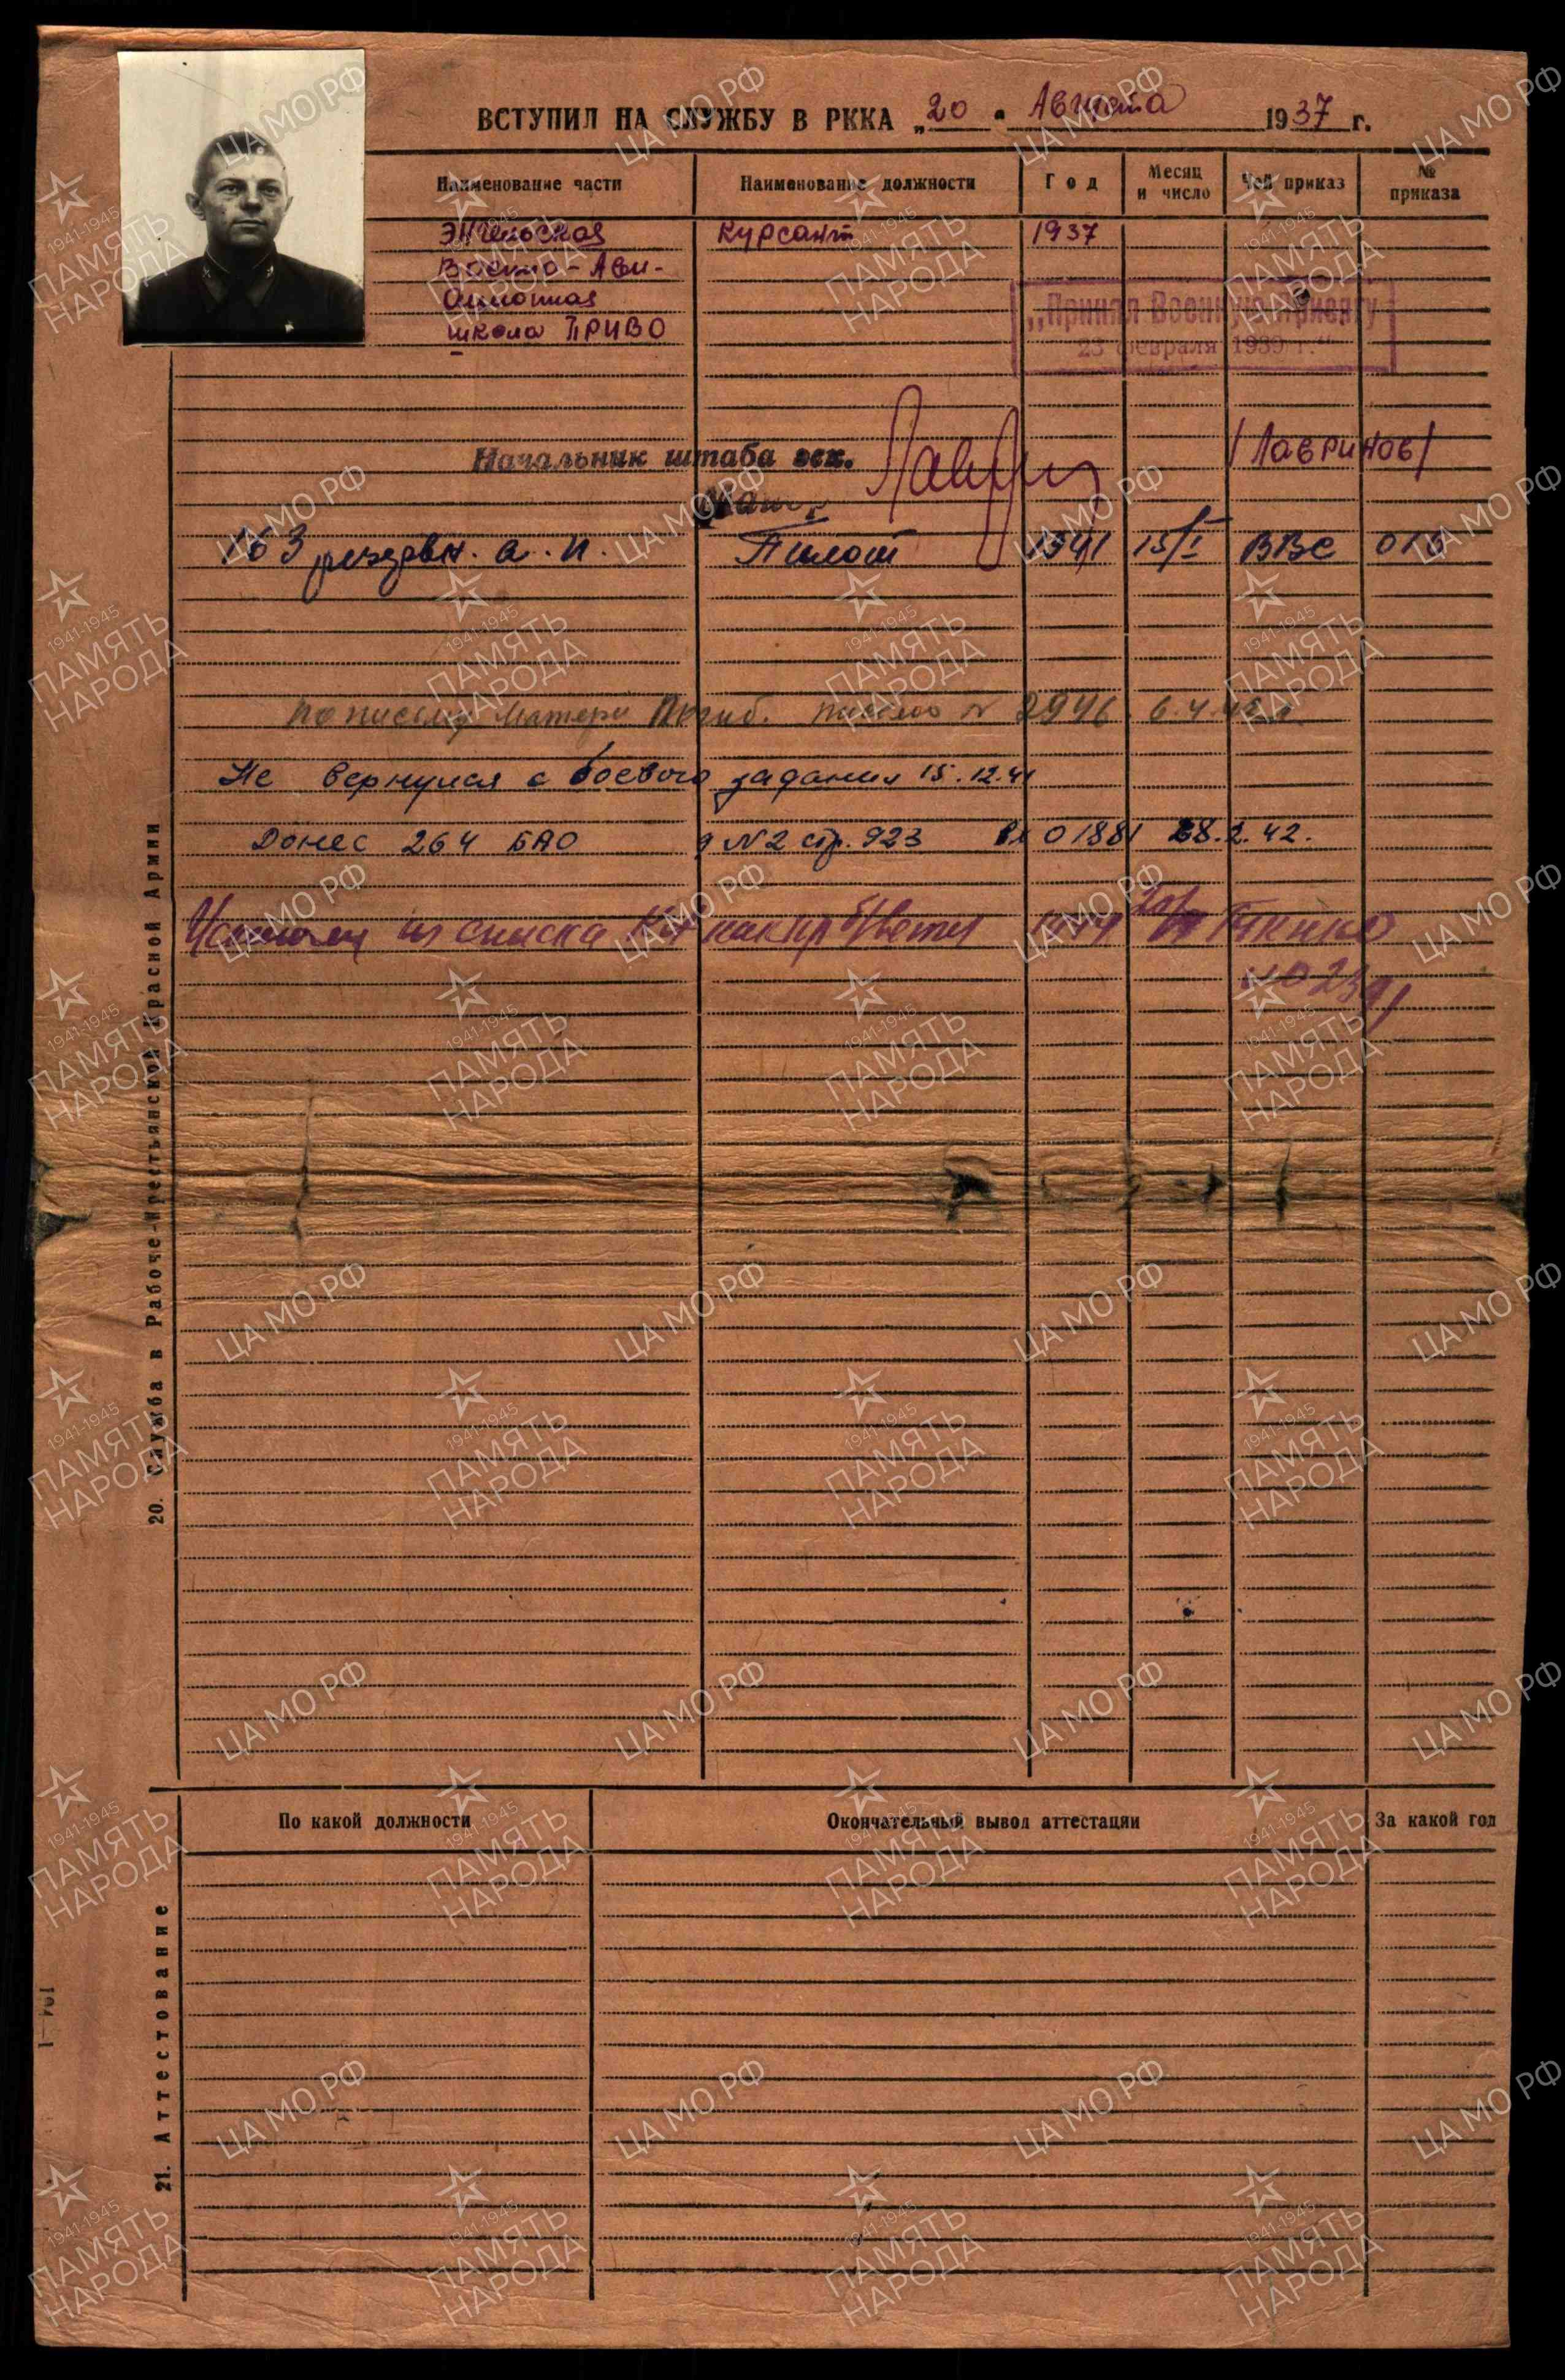 ВСТУПИЛ НА СЛУЖБУ В РККА „20" Августа 1937 г.
Наименование части Наименование должности Год Месяц и число Чей приказ № приказа
Энгельсская Курсант 1937
Военно-Ави-
ационная
школа ПРИВО
„Принял Военную присягу
23 февраля 1939 г."
Начальник штаба /Лавринов/
163 резервн. а. п. Пилот 1941 15/I ВВС
По письму матери Погиб. письмо № 2946 6.4.
Не вернулся с боевого задания 15.12.41
Донес 264 БАО д №2 стр. 923 вх 01881 28.2.42.
из списка как
20. Служба в Рабоче-Крестьянской Красной Армии
По какой должности Окончательный вывод аттестации За какой год
21. Аттестование
ЦА МО РФ
1941-1945
ПАМЯТЬ
НАРОДА